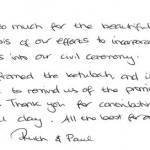 so much for the beautiful
of our efforts to incorporate
s into our civil ceremony.
framed the ketubah, and it
to remind us of the promis
Thank you for consulting
day. All the best for a
Ruth & Paul